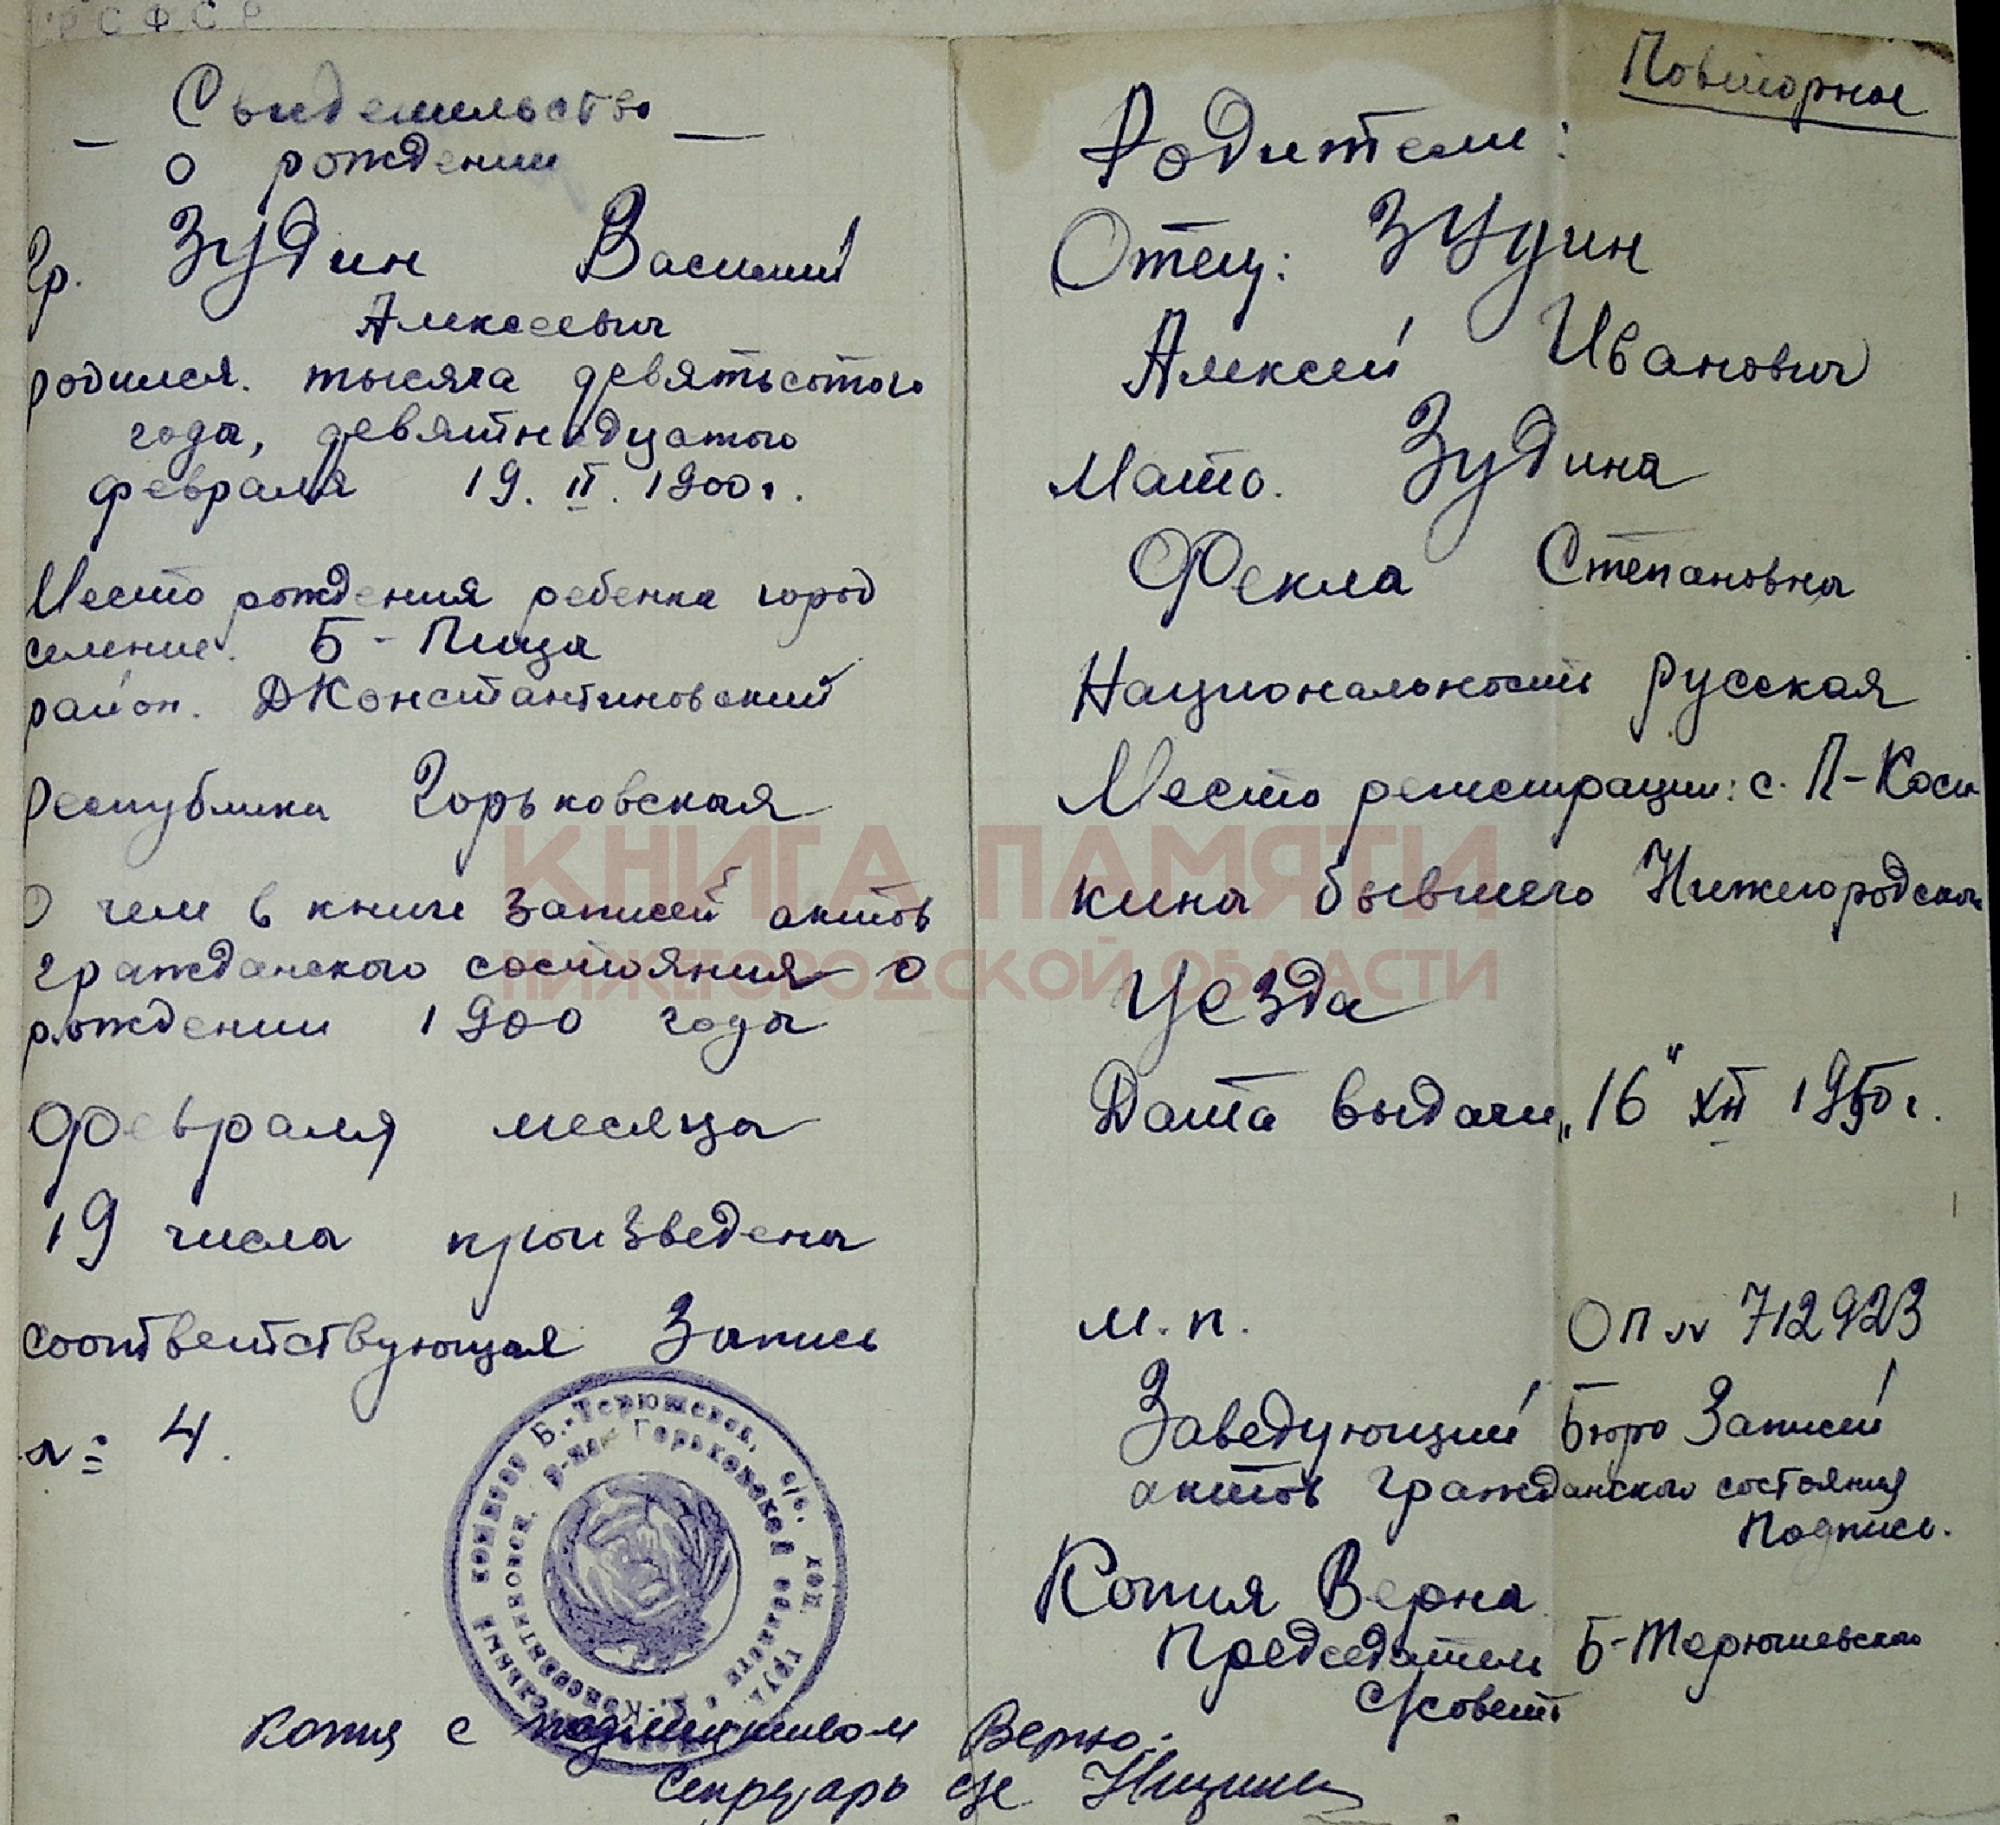 РСФСР
Свидетельство
о рождении
Гр. Зудин Василий
Алексеевич
родился. тысяча девятьсотого
года, девятнадцатого
февраля 19. II. 1900 г.
Место рождения ребенка город
селение. Б-Пица
район. ДКонстантиновский
Республика Горьковская
О чем в книге записей актов
гражданского состояния о
рождении 1900 года
февраля месяца
19 числа произведена
соответствующая Запись
№ 4.
Копия с подлинником Верно.
Секретарь с/с
Повторное
Родители:
Отец: Зудин
Алексей Иванович
Мать. Зудина
Фекла Степановна
Национальность русская
Место регистрации: с. П-Коси
кина бывшего Нижегородског
Уезда
Дата выдачи „16" XII 1950 г.
М. п. ОП № 712923
Заведующий Бюро Записей
актов гражданского состояния
Подпись.
Копия Верна
Председатель Б-Терюшевского
с/совета
КНИГА ПАМЯТИ
НИЖЕГОРОДСКОЙ ОБЛАСТИ